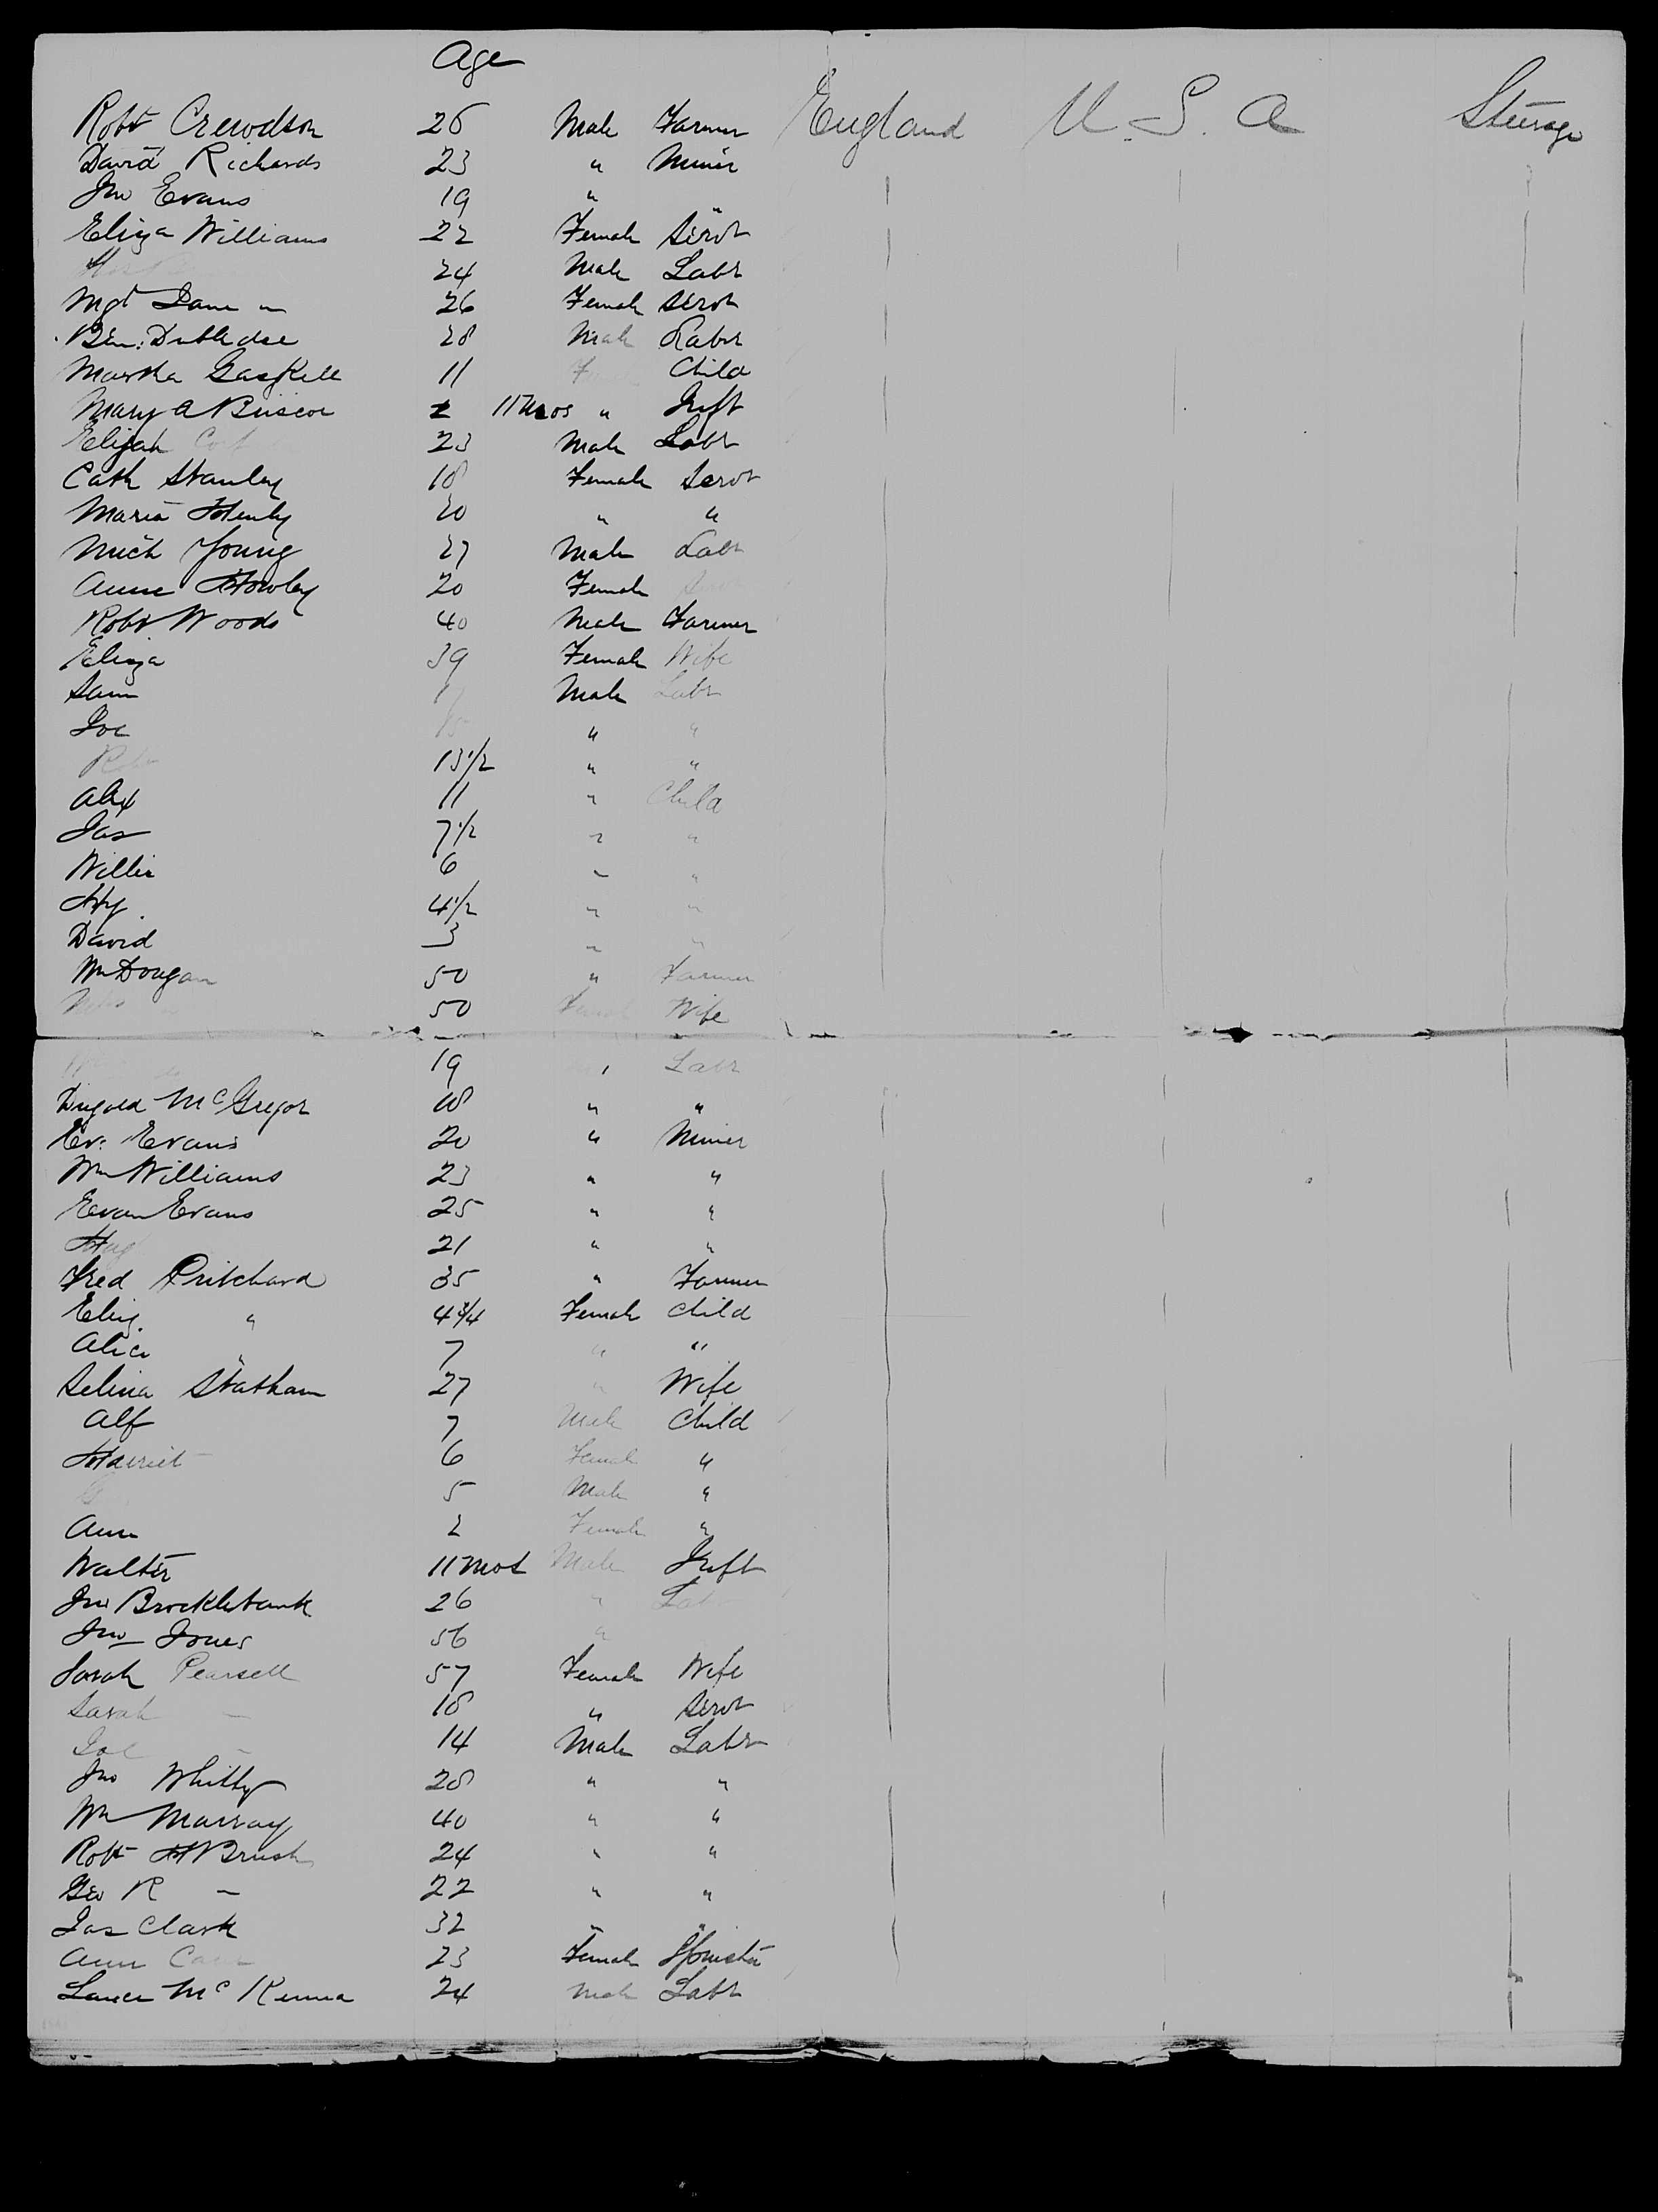 Age
Robt Crewdson 26 Male Farmer England U.S.A Steerage
David Richards 23 " Miner
Jno Evans 19 " "
Eliza Williams 22 Female Servt
24 Male Labr
Mgt Jane " 26 Female Servt
28 Male Labr
Martha Gaskell 11 Child
Mary A Briscoe 11 mos " Inft
Elijah 23 Male Labr
Cath Stanley 18 Female Servt
Maria Henly 20 " "
Mich Young 27 Male Labr
Anne Howley 20 Female
Robt Woods 40 Male Farmer
Eliza 39 Female Wife
Sam Male Labr
Joe " "
Robt 13 1/2 " "
Alex 11 " Child
Jas 7 1/2 " "
Willie 6 " "
Hy 4 1/2 " "
David 3 " "
Wm Dougan 50 " Farmer
50 Female Wife
19 " Labr
Dugald McGregor 18 " "
Ev. Evans 20 " Miner
Wm Williams 23 " "
Evan Evans 25 " "
21 " "
Fred Pritchard 35 " Farmer
Eliz. " 4 3/4 Female Child
Alice " 7 " "
Selina Statham 27 " Wife
Alf 7 Male Child
Harriet 6 Female "
5 Male "
Ann 2 Female "
Walter 11 mos Male Inft
Jno Brocklebank 26 " Labr
Jno Jones 56 "
Sarah Pearsell 57 Female Wife
Sarah - 18 " Servt
Joe - 14 Male Labr
Jno Whitby 28 " "
Wm Murray 40 " "
Robt H Brush 24 " "
Geo R - 22 " "
Jas Clark 32 " "
Ann 23 Female Spinster
Lance McKenna 24 Male Labr